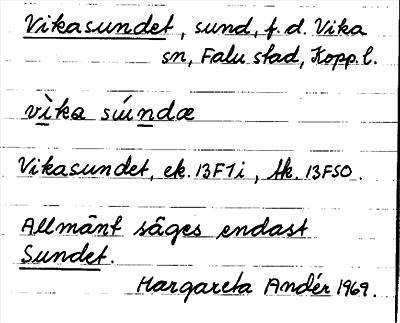 Vikasundet, sund, f.d. Vika
sn, Falu stad, Kopp. l.
vìka súndæ
Vikasundet, ek. 13F7i, tk. 13FSO.
Allmänt säges endast
Sundet.
Margareta Andér 1969.